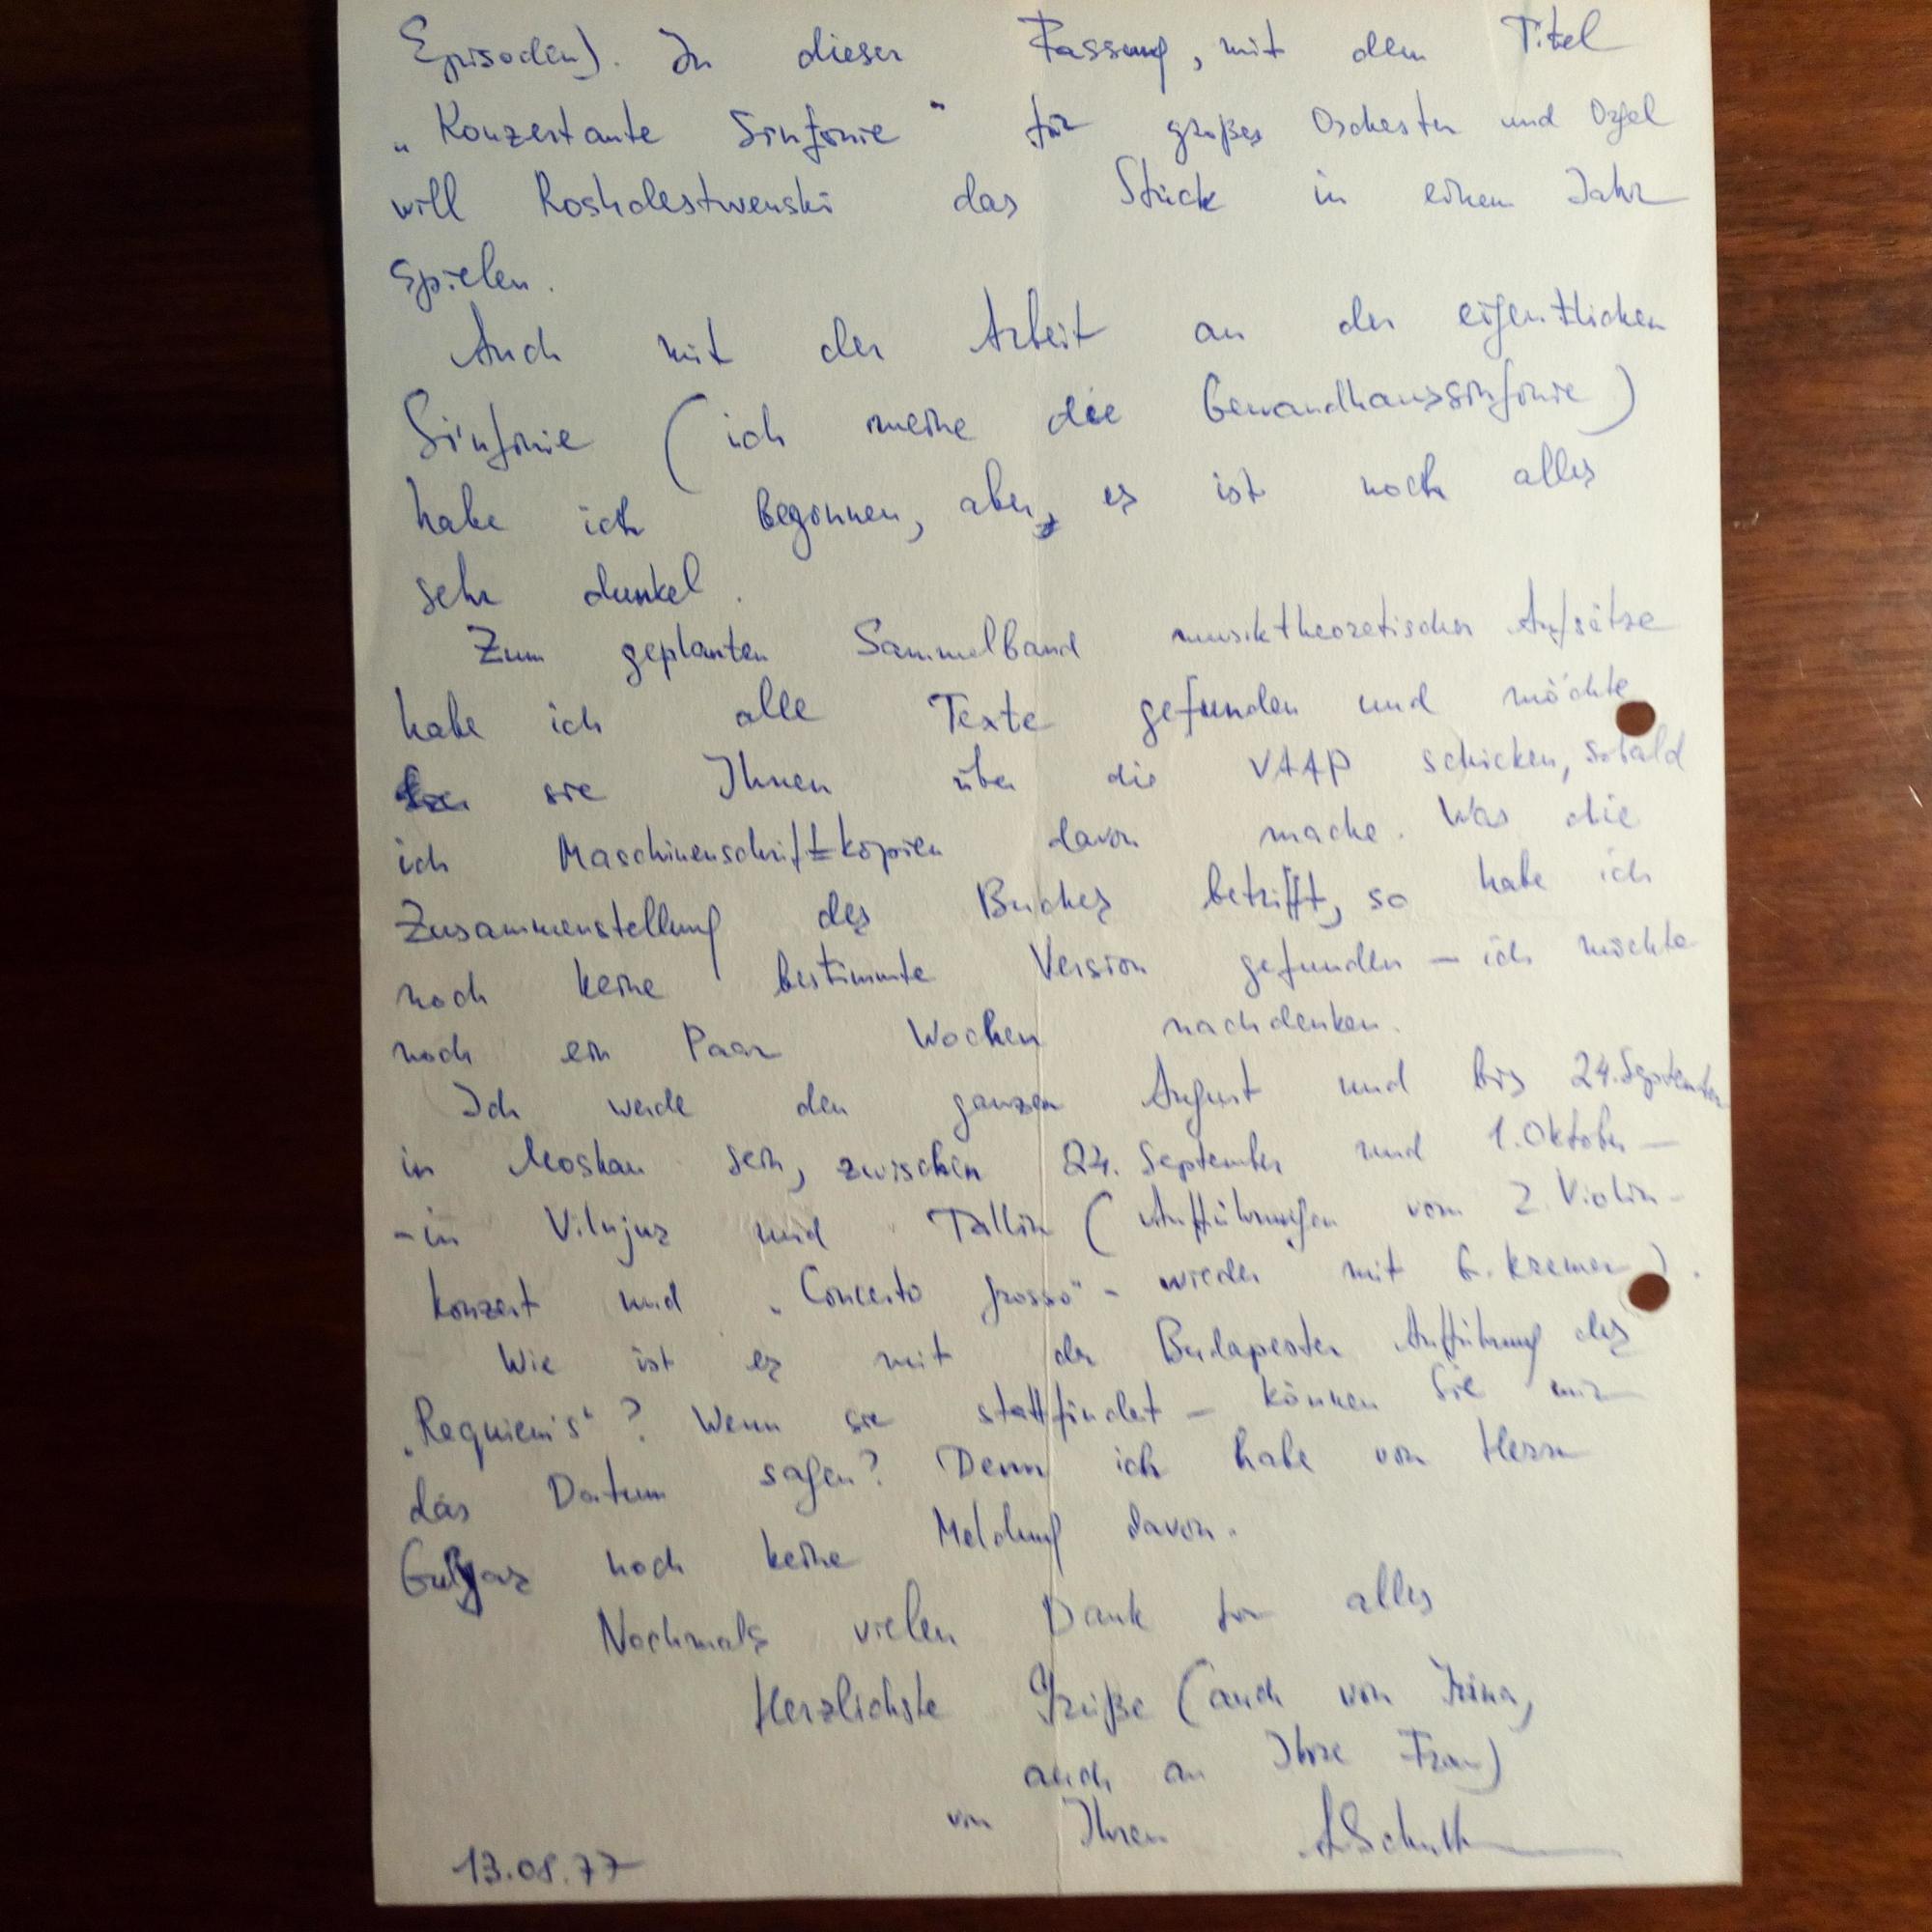 Episoden). In dieser Fassung, mit dem Titel
„Konzertante Sinfonie" für großes Orchester und Orgel
will Roshdestwenski das Stück in einem Jahr
spielen.
Auch mit der Arbeit an der eigentlichen
Sinfonie (ich meine die Gewandhaussinfonie)
habe ich begonnen, aber, es ist noch alles
sehr dunkel.
Zum geplanten Sammelband musiktheoretischer Aufsätze
habe ich alle Texte gefunden und möchte
sie Ihnen über die VAAP schicken, sobald
ich Maschinenschrift-kopien davon mache. Was die
Zusammenstellung des Buches betrifft, so habe ich
noch keine bestimmte Version gefunden – ich möchte
noch ein Paar Wochen nachdenken.
Ich werde den ganzen August und bis 24. September
in Moskau sein, zwischen 24. September und 1. Oktober –
- in Vilnjus und Tallin (Aufführungen vom 2. Violin-
konzert und „Concerto grosso" - wieder mit G. Kremer).
Wie ist es mit der Budapester Aufführung des
„Requiem's"? Wenn sie stattfindet – können Sie mir
das Datum sagen? Denn ich habe von Herrn
noch keine Meldung davon.
Nochmals vielen Dank für alles
Herzlichste Grüße (auch von Irina,
auch an Ihre Frau)
von Ihrem ASchnittke
13.08.77